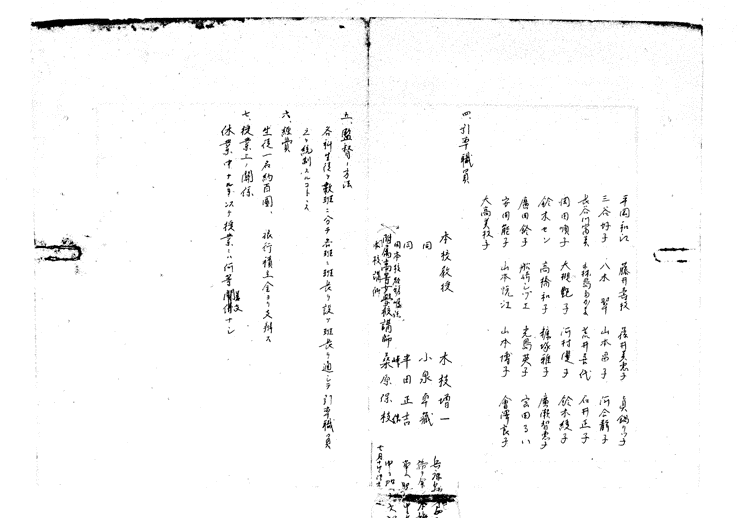 平岡和江 藤井壽枝 貞鍋りつ子
三谷好子 八木翠 山本常子 河合静子
長谷川富美 荒井喜代 石井正子
岡田順子 大槻艶子 河村優子 鈴木綾子
鈴木セン 高橋和子 糠塚雅子 廣瀬智恵子
廣田鈴子 船崎シヅエ 児島英子 宮田るい
安田能子 山本悦江 山本博子 會澤良子
大高美枝子
四、引率職員
本校教授 木枝増一
同 小泉卓蔵
同 平田正吉
附属高等女学校講師
本校講師 桑原保枝
五、監督ノ方法
各科生徒ヲ数班ニ分チ各班ニ班長ヲ設ケ班長ヲ通シテ引率職員
之ヲ統制スルコトヽス
六、経費
生徒一名約百圓、旅行積立金ヨリ支辨ス
七、授業上ノ関係
休業中ナルヲ以テ授業ニハ何等関係ナシ